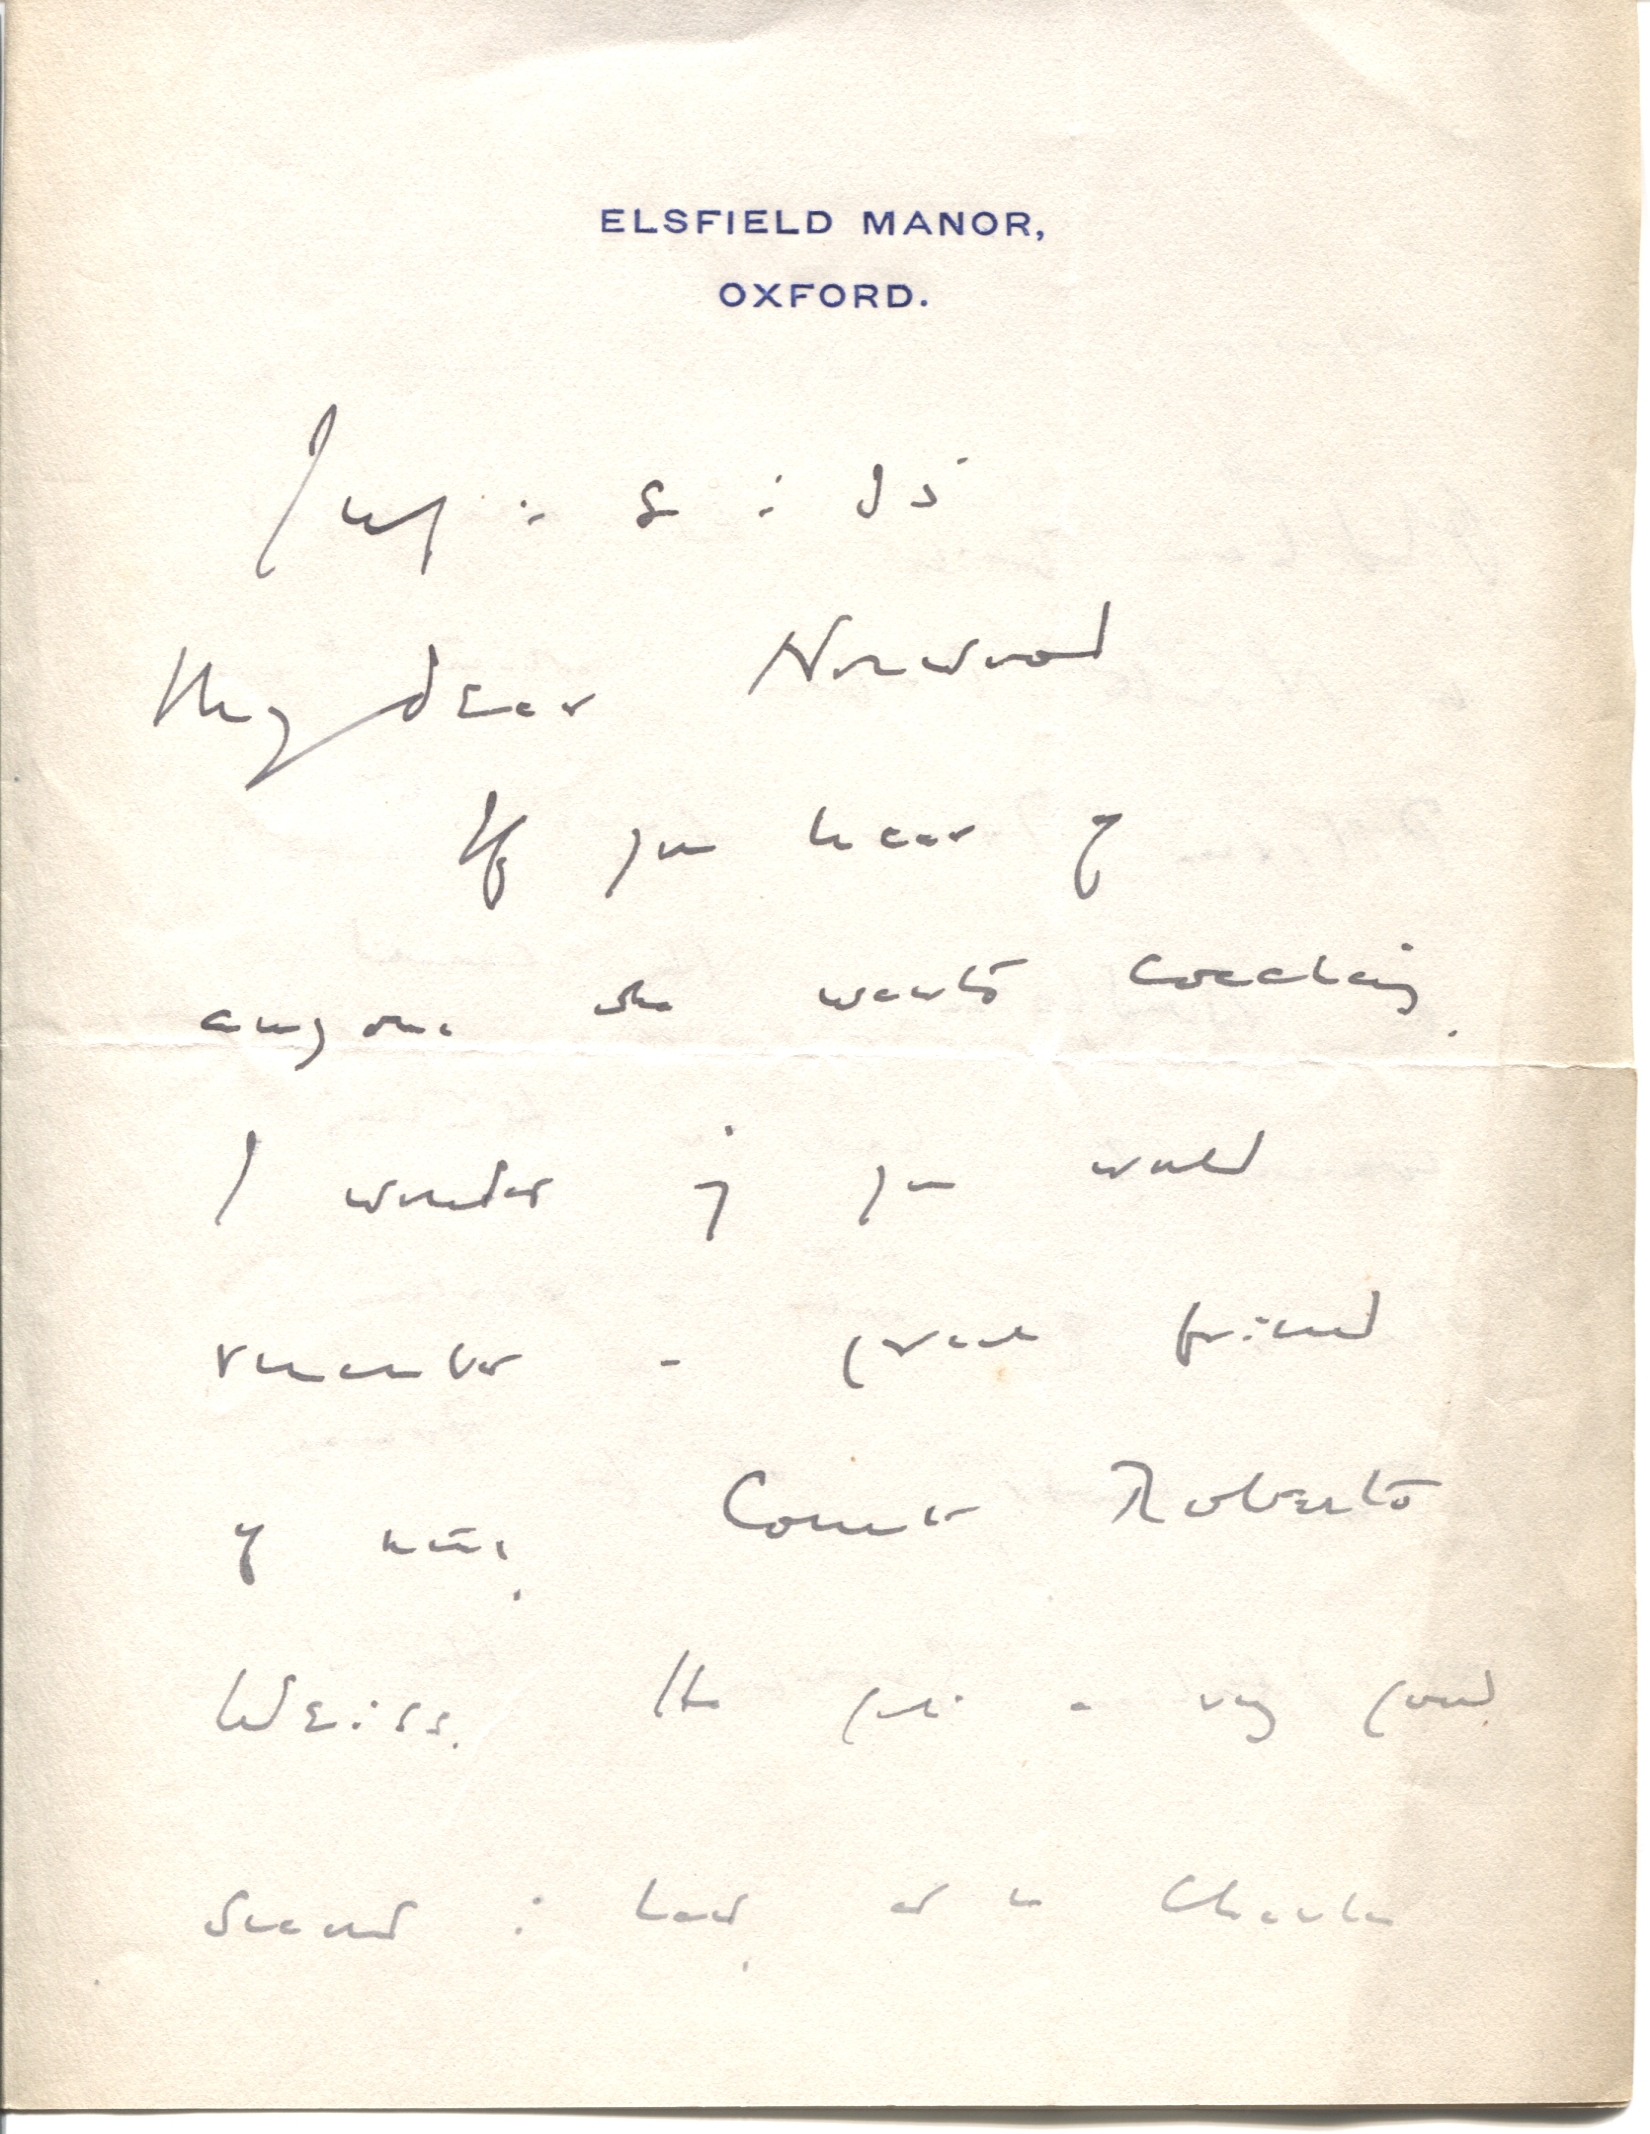 ELSFIELD MANOR,
OXFORD.
July : 8 : 35
My dear Norwood
If you hear of
anyone who wants coaching,
I wonder if you would
remember a great friend
of mine, Count Roberto
Weiss. He got a very good
second in Law, and